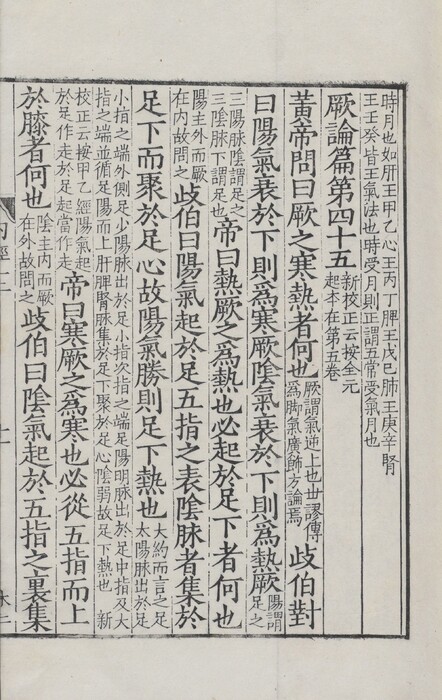 時月也如肝王甲乙心王丙丁脾王戊己肺王庚辛腎
王壬癸皆王氣法也時受月則正謂五常受氣月也
厥論篇第四十五 新校正云按全元起本在第五卷
黃帝問曰厥之寒熱者何也 厥謂氣逆上也世謬傳爲脚氣廣飾方論焉 歧伯對
曰陽氣衰於下則爲寒厥陰氣衰於下則爲熱厥 陽謂足之
三陽脉陰謂足之三陰脉下謂足也 帝曰熱厥之爲熱也必起於足下者何也
陽主外而厥在内故問之 歧伯曰陽氣起於足五指之表陰脉者集於
足下而聚於足心故陽氣勝則足下熱也 大約而言之足太陽脉出於足
小指之端外側足少陽脉出於足小指次指之端足陽明脉出於足中指及大
指之端並循足陽而上肝脾腎脉集於足下聚於足心陰弱故足下熱也 新
校正云按甲乙經陽氣起於足作走於足起當作走 帝曰寒厥之爲寒也必從五指而上
於膝者何也 陰主内而厥在外故問之 歧伯曰陰氣起於五指之裏集